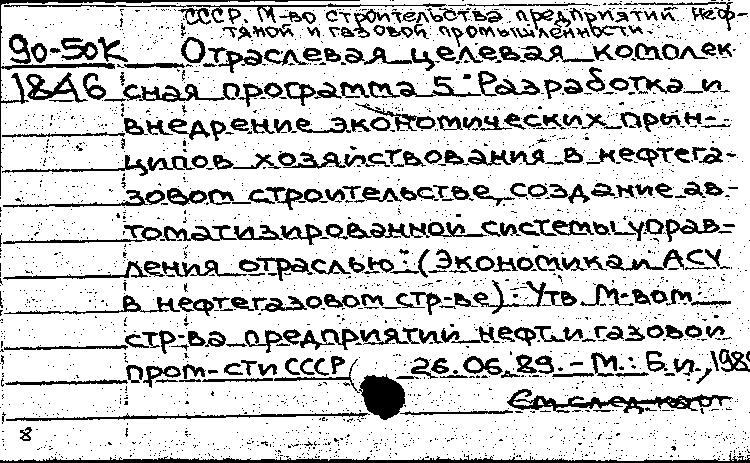 СССР. М-во строительства предприятий неф-
тяной и газовой промышленности.
90-50К Отраслевая целевая комплек
1846 сная программа 5 "Разработка и
внедрение экономических прин-
ципов хозяйствования в нефтега-
зовом строительстве, создание ав-
томатизированной системы управ-
ления отраслью": (Экономика и АСУ
в нефтегазовом стр-ве): Утв. М-вом
стр-ва предприятий нефт. и газовой
пром-сти СССР 26.06.89. - М.: Б.и., 1989
См след карт
8